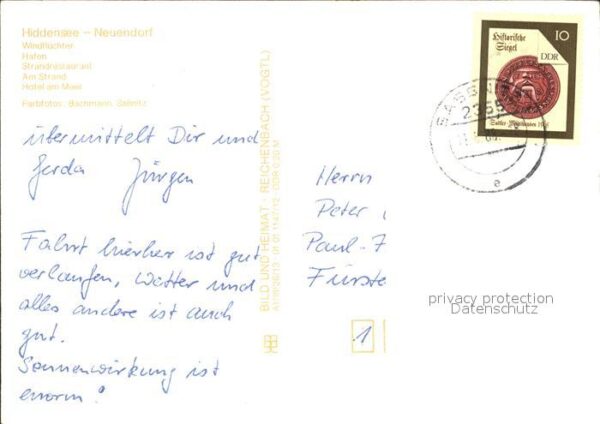 Hiddensee – Neuendorf
Windflüchter
Hafen
Strandrestaurant
Am Strand
Hotel am Meer
Farbfotos: Bachmann, Saßnitz
übermittelt Dir und
Gerda Jürgen
Fahrt hierher ist gut
verlaufen, Wetter und
alles andere ist auch
gut.
Sonnenwirkung ist
enorm!
BILD UND HEIMAT · REICHENBACH (VOGTL)
Historische
Siegel
10
DDR
2355
Herrn
Peter
Paul-
Fürste
privacy protection
Datenschutz
1